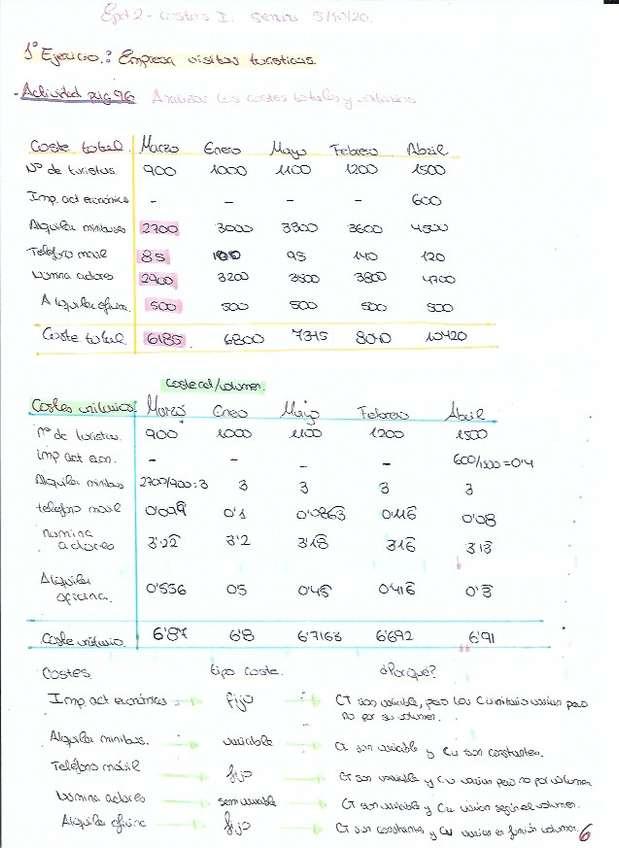 Epd 2 - Costes I. Semana 5/10/20.
1º Ejercicio: Empresa visitas turísticas.
- Actividad pág 96 Analizar los costes totales y unitarios
Coste total. Marzo Enero Mayo Febrero Abril
Nº de turistas. 900 1000 1100 1200 1500
Imp. act económica - - - - 600
Alquiler minibuses 2700 3000 3300 3600 4500
Teléfono móvil 85 100 95 140 120
Nomina actores 2900 3200 3500 3800 4700
Alquiler oficina. 500 500 500 500 500
Coste total 6185 6800 7395 8040 10420
Coste cal/volumen.
Costes unitarios. Marzo Enero Mayo Febrero Abril
nº de turistas. 900 1000 1100 1200 1500
imp act eon. - - - - 600/1500 = 0'4
Alquiler minibus 2700/900 = 3 3 3 3 3
telefono movil 0'094 0'1 0'0863 0'116 0'08
nomina actores 3'22 3'2 3'18 3'16 3'13
Alquiler oficina. 0'556 05 0'45 0'416 0'3
Coste unitario. 6'87 6'8 6'7163 6'692 6'91
Costes. tipo coste. ¿Por qué?
Imp. act económica fijo CT son variable, pero los C unitario varian pero
no por su volumen.
Alquiler minibus. variable Ct son variable y Cu son constantes.
Teléfono móvil fijo CT son variable y Cu varian pero no por volumen.
Nomina actores semivariable CT son variable y Cu varian según el volumen.
Alquiler oficina fijo CT son constantes y Cu varian en función volumen.
6